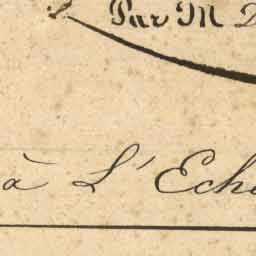 Par M
à L'Eche